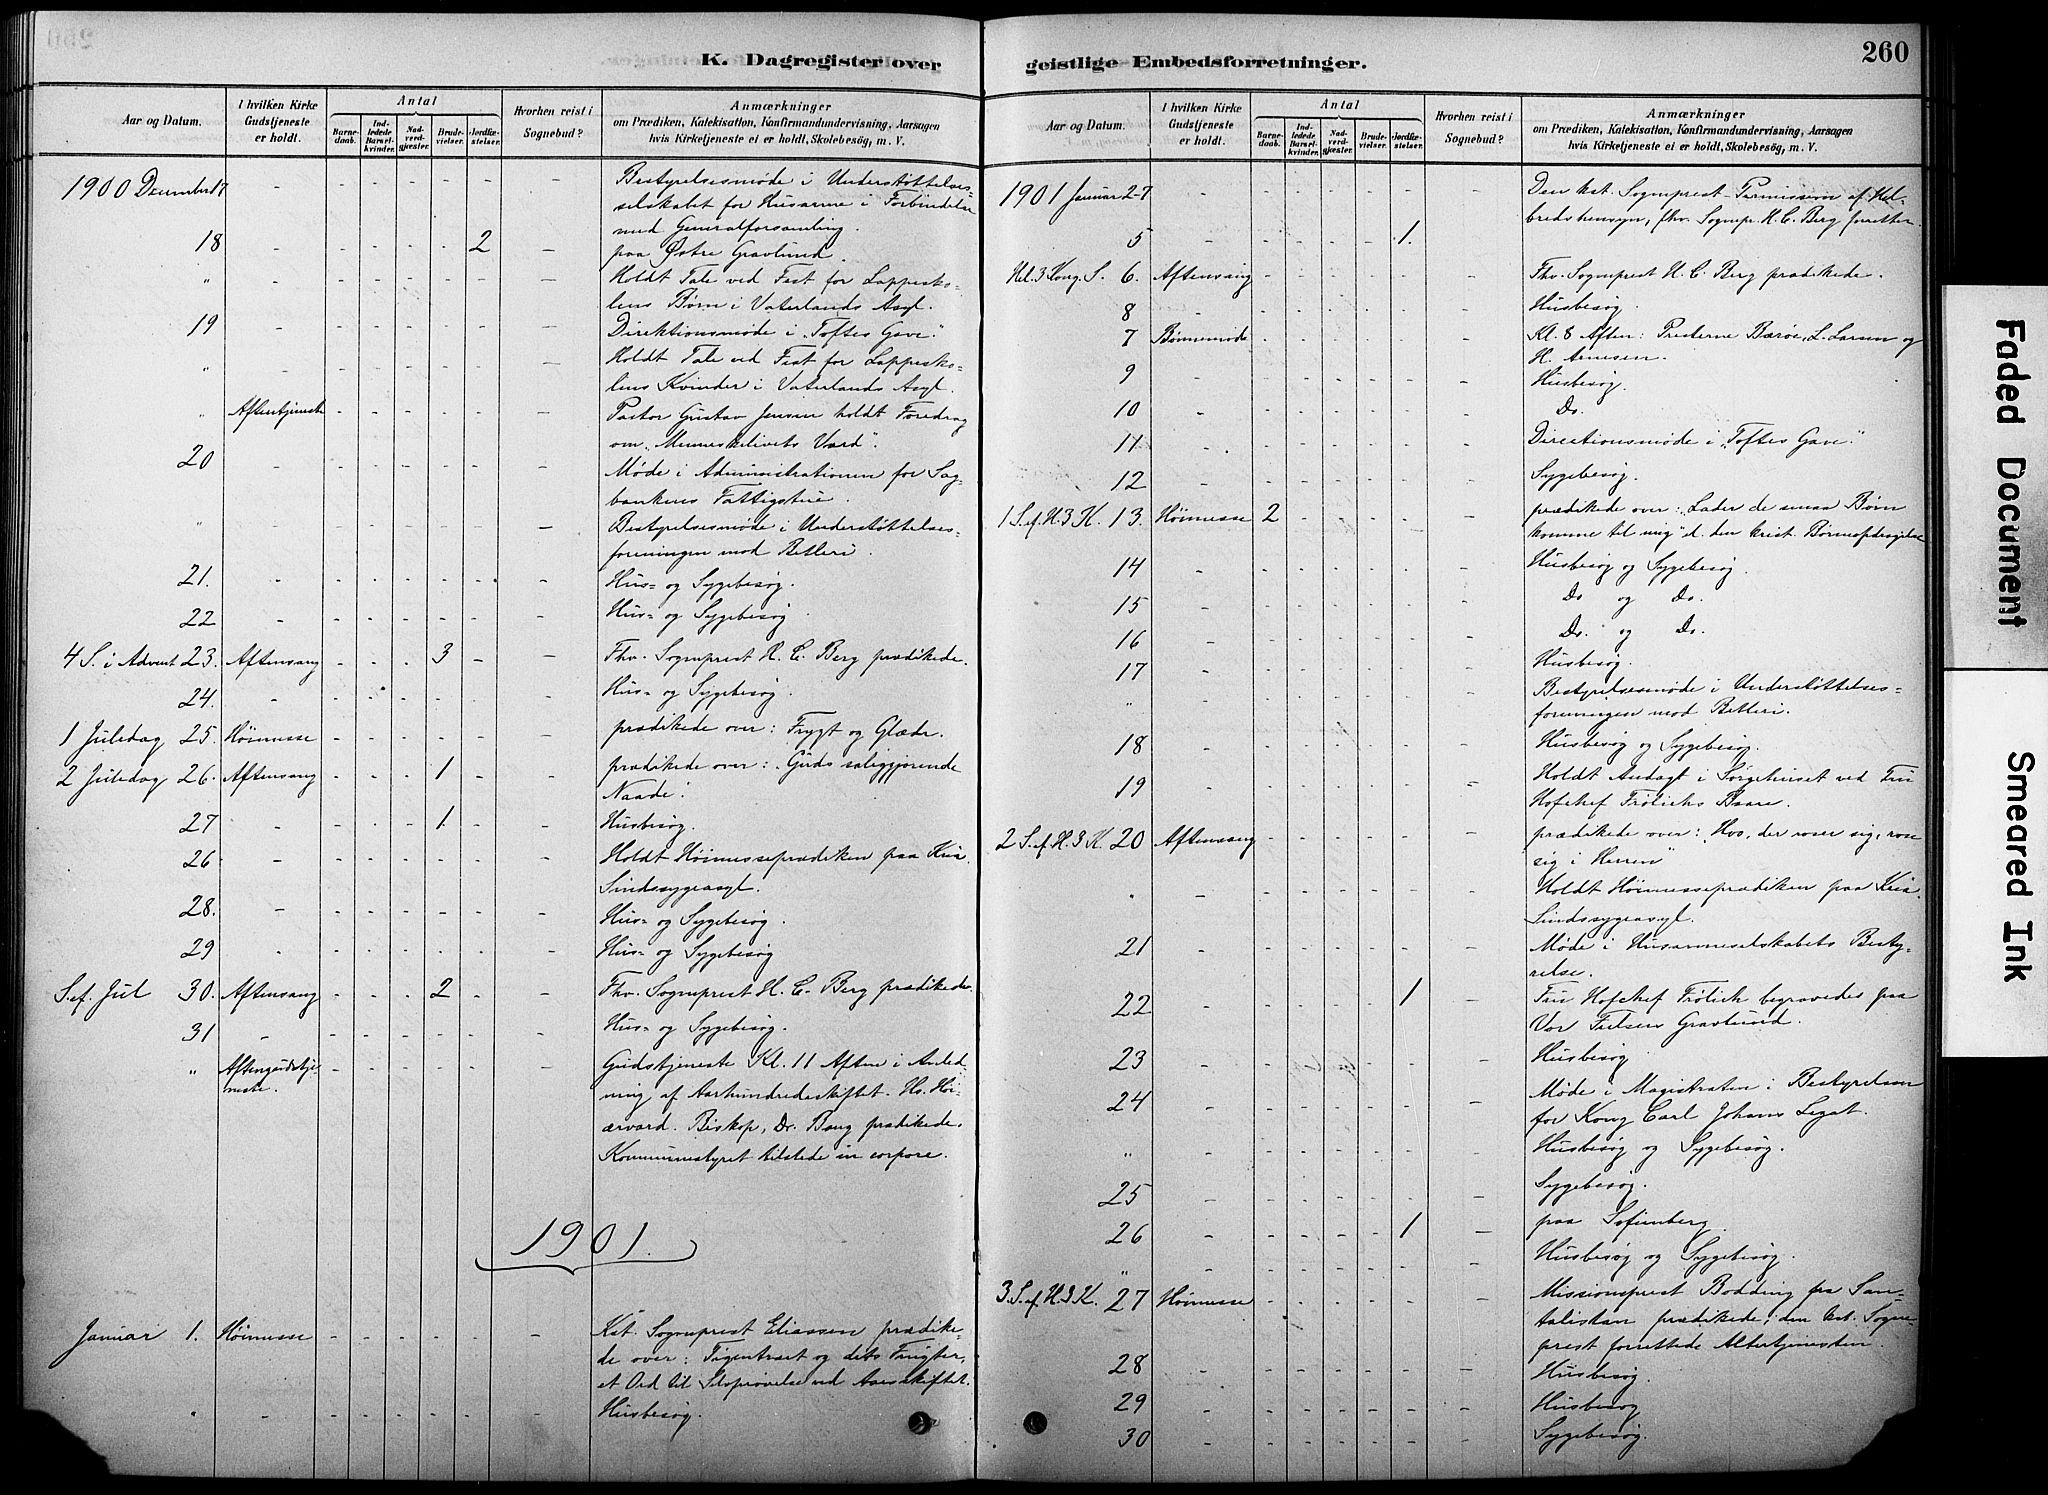 260
K. Dagregister over geistlige Embedsforretninger.
Aar og Datum.
I hvilken Kirke Gudstjeneste er holdt.
Antal
Barne-daab.
Ind-ledede Barsel-kvinder.
Nad-verd-gjester.
Brude-vielser.
Jordfæ-stelser.
Hvorhen reist i Sognebud?
Anmærkninger
om Prædiken, Katekisation, Konfirmandundervisning, Aarsagen
hvis Kirketjeneste ei er holdt, Skolebesøg, m. V.
1900 December 17 - - - - - - - Bestyrelsesmøde i Understøttelses-
selskabet for Husarme i Forbindelse
med Generalforsamling.
18 - - - - - 2 - paa Østre Gravlund.
" - - - - - - - Holdt Tale ved Fest for Lappesko-
lens Børn i Vaterlands Asyl.
19 - - - - - - - Direktionsmøde i "Toftes Gave".
" - - - - - - - Holdt Tale ved Fest for Lappesko-
lens Kvinder i Vaterlands Asyl.
" Aftentjeneste - - - - - - Pastor Gustav Jensen holdt Foredrag
om "Menneskelivets Værd".
20 - - - - - - - Møde i Administrationen for Sag-
bankens Fattigstue.
" - - - - - - - Bestyrelsesmøde i Understøttelses-
foreningen mod Betleri.
21. - - - - - - - Hus- og Sygebesøg.
22 - - - - - - - Hus- og Sygebesøg
4 S. i Advent 23. Aftensang - - - 3 - - Fhv. Sogneprest H. C. Berg prædikede.
24. - - - - - - - Hus- og Sygebesøg.
1 Juledag 25. Høimesse - - - - - - prædikede over: Frygt og Glæde.
2 Juledag 26. Aftensang - - - 1 - - prædikede over: "Guds saliggjørende
Naade".
27 - - - - 1. - - Husbesøg.
26 - - - - - - - Holdt Høimesseprædiken paa Kria.
Sindssygeasyl.
28. - - - - - - - Hus- og Sygebesøg.
29 - - - - - - - Hus- og Sygebesøg
S. ef. Jul 30. Aftensang - - - 2 - - Fhv. Sogneprest H. C. Berg prædikede.
31 - - - - - - - Hus- og Sygebesøg.
" Aftengudstje-
neste. - - - - - - Gudstjeneste Kl. 11 Aften i Anled-
ning af Aarhundredeskiftet. Hs. Høi-
ærværd. Biskop, Dr. Bang prædikede.
Kommunestyret tilstede in corpore.
1901.
Januar 1. Høimesse - - - - - - Kst. Sogneprest Eliassen prædike-
de over: Figentræet og dets Frugter,
et Ord til Selvprøvelse ved Aarsskiftet.
" - - - - - - - Husbesøg.
Aar og Datum.
I hvilken Kirke Gudstjeneste er holdt.
Antal
Barne-daab.
Ind-ledede Barsel-kvinder.
Nad-verd-gjester.
Brude-vielser.
Jordfæ-stelser.
Hvorhen reist i Sognebud?
Anmærkninger
om Prædiken, Katekisation, Konfirmandundervisning, Aarsagen
hvis Kirketjeneste ei er holdt, Skolebesøg, m. V.
1901 Januar 2-7 - - - - - - - Den kst. Sogneprest Permission af Hel-
bredshensyn, fhv. Sognep. H. C. Berg forretter.
5 - - - - - 1. -
Hel. 3 Kong. S. 6. Aftensang - - - - - - Fhv. Sogneprest H. C. Berg prædikede.
8 - - - - - - - Husbesøg.
7 Bønnemøde - - - - - - Kl. 8 Aften: Presterne Bærøe, L. Larsen og
H. Arnesen.
9 - - - - - - - Husbesøg.
10 - - - - - - - Do.
11 - - - - - - - Directionsmøde i "Toftes Gave".
12 - - - - - - - Sygebesøg.
1 S. ef. H. 3 K. 13. Høimesse 2 - - - - - prædikede over: "Lader de smaa Børn
komme til mig" d. den krist. Børneopdragelse
14 - - - - - - - Husbesøg og Sygebesøg.
15 - - - - - - - Do og Do.
16 - - - - - - - Do. og Do.
17 - - - - - - - Husbesøg.
" - - - - - - - Bestyrelsesmøde i Understøttelses-
foreningen mod Betleri.
18 - - - - - - - Husbesøg og Sygebesøg.
19 - - - - - - - Holdt Andagt i Sørgehuset ved Fru
Hofchef Frölichs Baare.
2 S. ef. H. 3 K. 20 Aftensang - - - - - - prædikede over: "Hvo, der roser sig, rose
sig i Herren"
" - - - - - - - Holdt Høimesseprædiken paa Kria
Sindssygeasyl.
21 - - - - - - - Møde i Husarmeselskabets Besty-
relse.
22 - - - - - 1 - Fru Hofchef Frölich begravedes paa
Vor Frelsers Gravlund.
23 - - - - - - - Husbesøg
24 - - - - - - - Møde i Magistraten i Bestyrelsen
for Kong Carl Johans Legat.
" - - - - - - - Husbesøg og Sygebesøg.
25 - - - - - - - Sygebesøg.
26 - - - - - 1 - paa Sofienberg.
" - - - - - - - Husbesøg og Sygebesøg.
3. S. ef. H. 3 K. 27 Høimesse - - - - - - Missionsprest Bodding fra San-
talistan prædikede; den kst. Sogne-
prest forrettede Altertjenesten.
28 - - - - - - - Husbesøg.
29 - - - - - - - Husbesøg
30 - - - - - - - Sygebesøg.
Faded Document
Smeared Ink